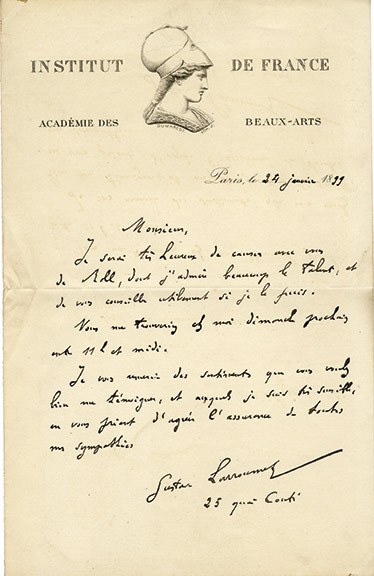 INSTITUT DE FRANCE
ACADÉMIE DES BEAUX-ARTS
Paris, le 24 janvier 1899
Monsieur,
Je serai très heureux de causer avec vous
de Roll, dont j'admire beaucoup le talent, et
de vous conseiller utilement si je le puis.
Vous me trouverez chez moi dimanche prochain
entre 11h et midi.
Je vous remercie des sentiments que vous voulez
bien me témoigner, et auxquels je suis très sensible,
en vous priant d'agréer l'assurance de toutes
mes sympathies
Gustave Larroumet
25 quai Conti